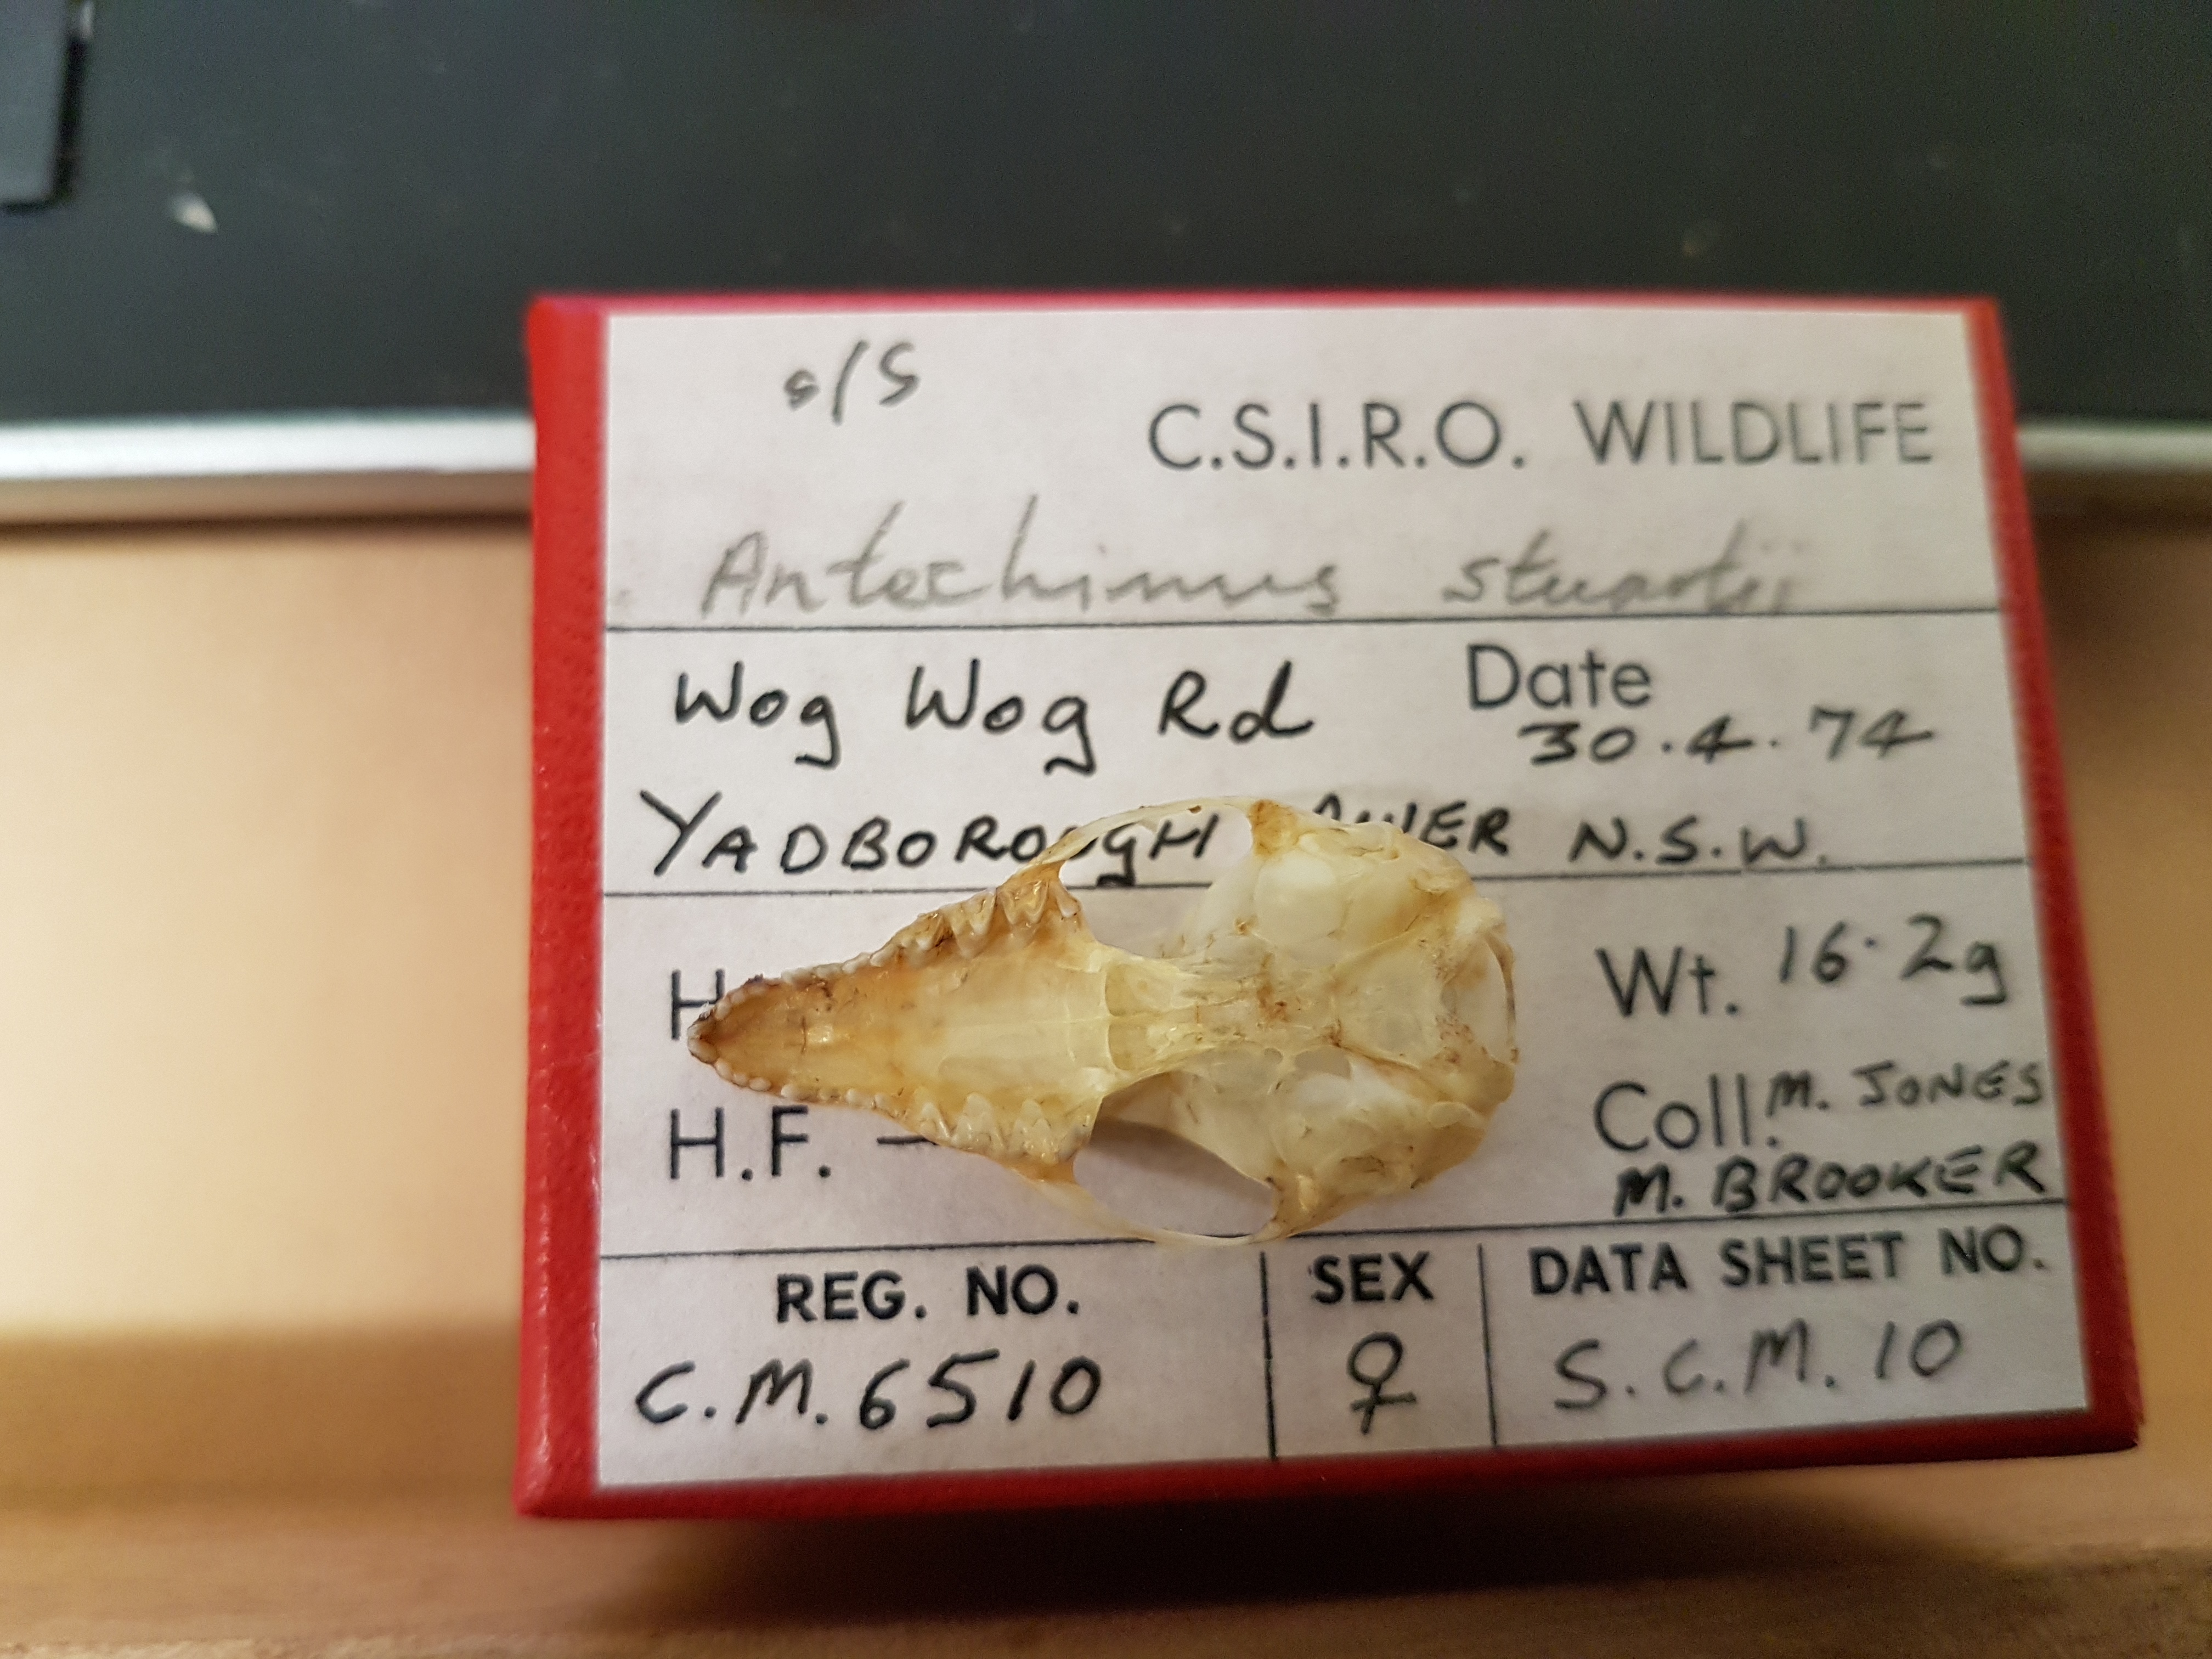 s/s
C.S.I.R.O. WILDLIFE
Antechinus stuartii
Wog Wog Rd Date 30.4.74
YADBOROUGH N.S.W.
H Wt. 16.2g
H.F. – Coll. M. JONES
M. BROOKER
REG. NO. SEX DATA SHEET NO.
C.M. 6510 ♀ S.C.M. 10